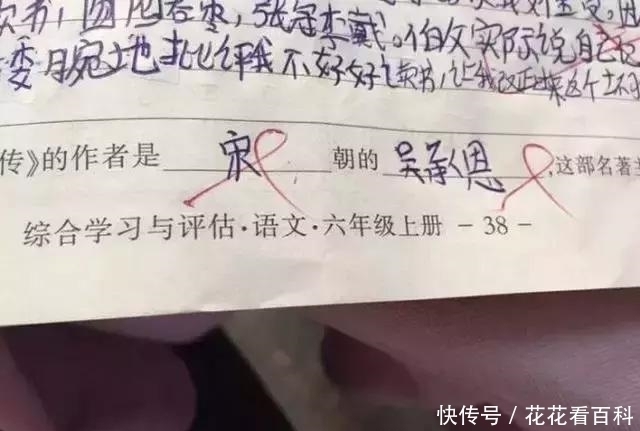 囫囵吞枣,张冠李戴。伯父实际说自己
委婉地批评我不好好读书,让我改正这个坏
传》的作者是 宋 朝的 吴承恩 ,这部名著
综合学习与评估·语文·六年级上册 - 38 -
快传号 / 花花看百科